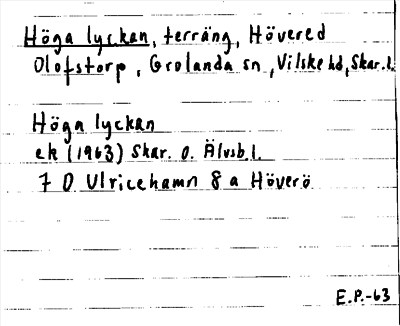 Höga lyckan, terräng, Hövered
Olofstorp, Grolanda sn, Vilske hd, Skar. l.
Höga lyckan
ek (1963) Skar. o. Älvsb. l.
7 D Ulricehamn 8 a Höverö
E.P.-63